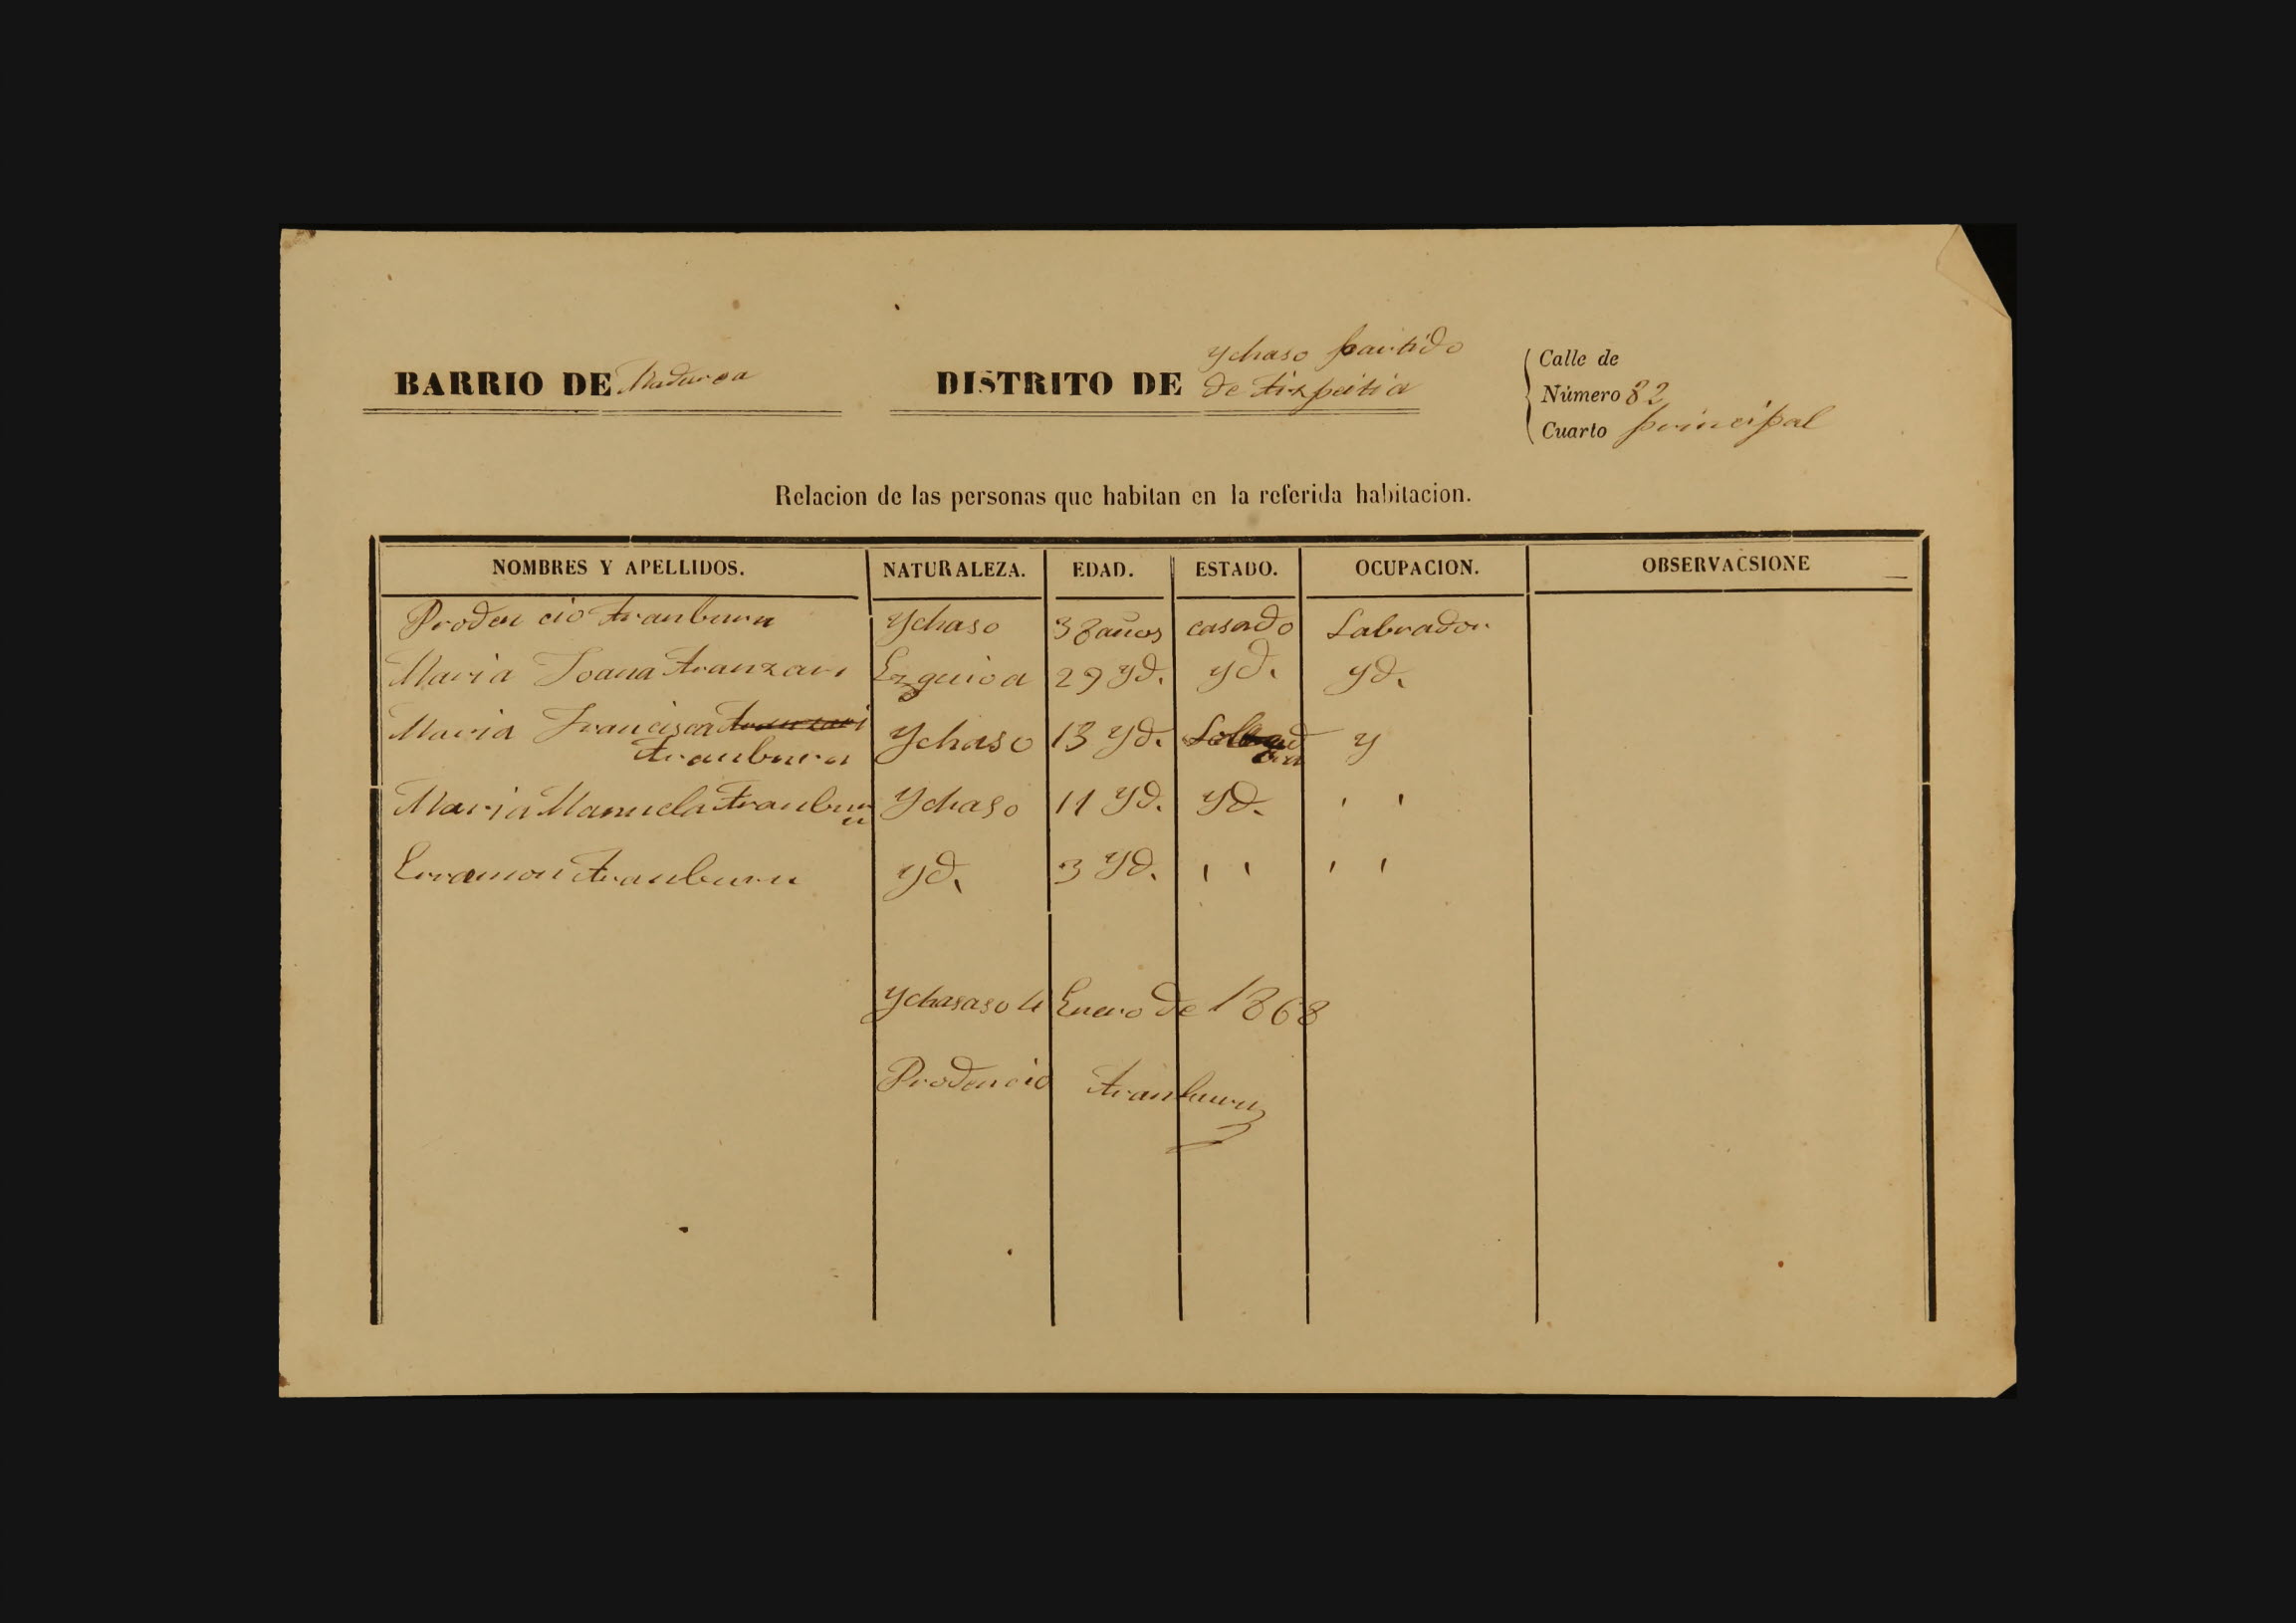 BARRIO DE Madarsa DISTRITO DE Ychaso partido
de Aizpeitia
Calle de
Número 82
Cuarto principal
Relacion de las personas que habitan en la referida habitacion.
NOMBRES Y APELLIDOS. NATURALEZA. EDAD. ESTADO. OCUPACION. OBSERVACSIONE
Proden cio Aranburu Ychaso 38 años casado Labrador
Maria Joana Aranzavi Ezquioa 29 yd. yd. yd.
Maria Francisca Aranzavi
Aranburu Ychaso 13 yd. y
Maria Manuela Aranburu Ychaso 11 yd. yd. ' '
Erramon Aranburu yd. 3 yd. ' ' ' '
Ychasaso 4 Enero de 1868
Prodencio Aranburu